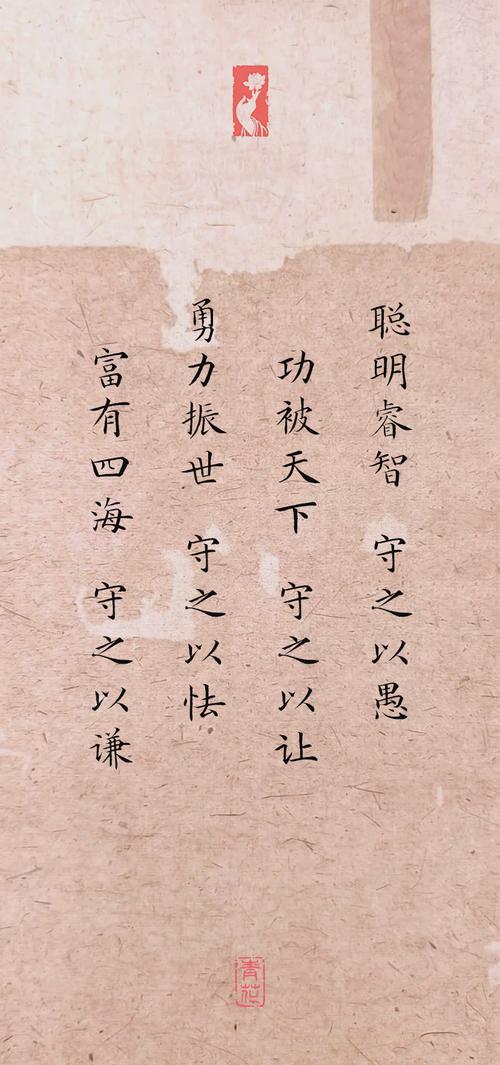 聪明睿智 守之以愚
功被天下 守之以让
勇力振世 守之以怯
富有四海 守之以谦
青花